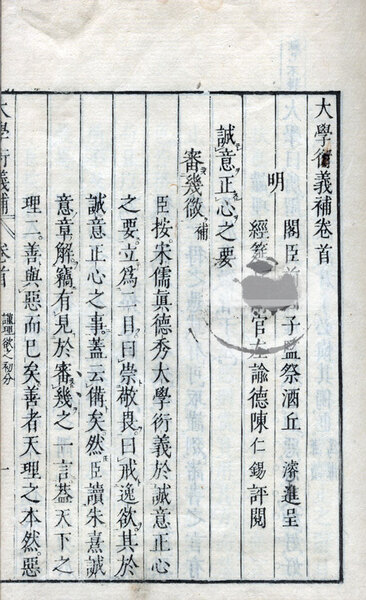 大學衍義補卷首
明
閣臣前子監祭酒丘濬進呈
經筵官左諭德陳仁錫評閱
誠意正心之要
審幾微補
臣按宋儒眞德秀大學衍義於誠意正心
之要立爲二目曰崇敬畏曰戒逸欲其於
誠意正心之事蓋云備矣然臣讀朱熹誠
意章解竊有見於審幾之一言葢天下之
理二善與惡而已矣善者天理之本然惡
大學衍義補 卷首 謹理欲之初分 一